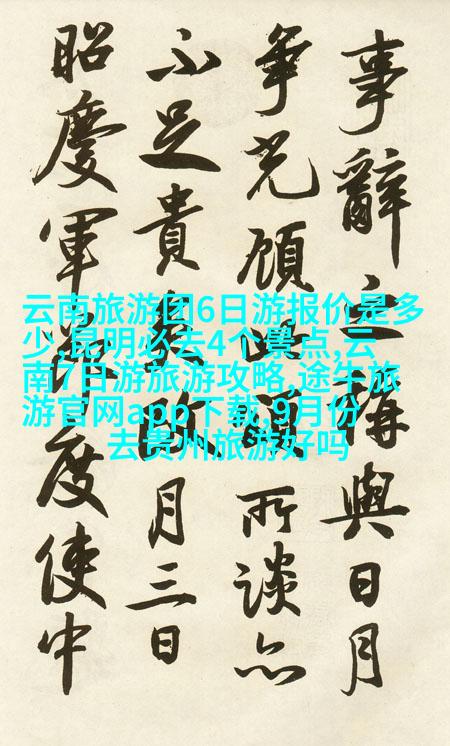 事辭之與日月
爭光顧此所談亦
不足貴矣月三日
昭慶軍節度使中
云南旅游团6日游报价是多
少,昆明必去4个景点,云
南7日游旅游攻略,途牛旅
游官网app下载,9月份
去贵州旅游好吗